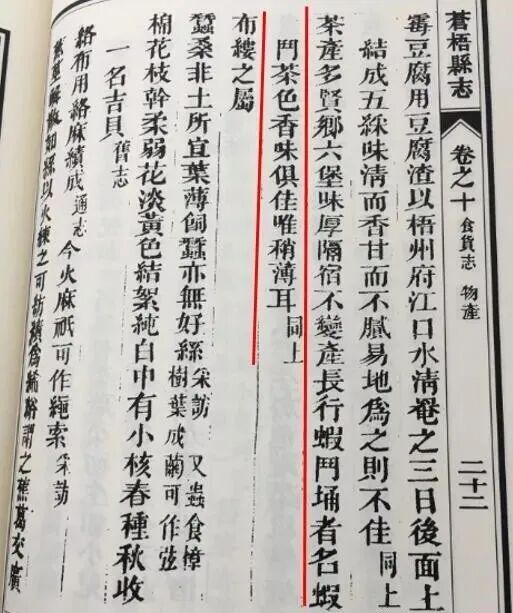 蒼梧縣志 卷之十 食貨志 物產 二十二
霉豆腐用豆腐渣以梧州府江口水清罨之三日後面上
結成五綵味清而香甘而不膩易地為之則不佳 同上
茶產多賢鄉六堡味厚隔宿不變產長行蝦鬥埇者名蝦
鬥茶色香味俱佳唯稍薄耳 同上
布縷之屬
蠶桑非土所宜葉薄飼蠶亦無好絲 采訪 又蟲食樟
樹葉成繭可作弦
棉花枝幹柔弱花淡黃色結絮純白中有小核春種秋收
一名吉貝 舊志
絡布用絡麻績成 通志 今火麻祇可作繩索 采訪
解散如絲以火練之可紡績為絺綌謂之蕉葛交廣